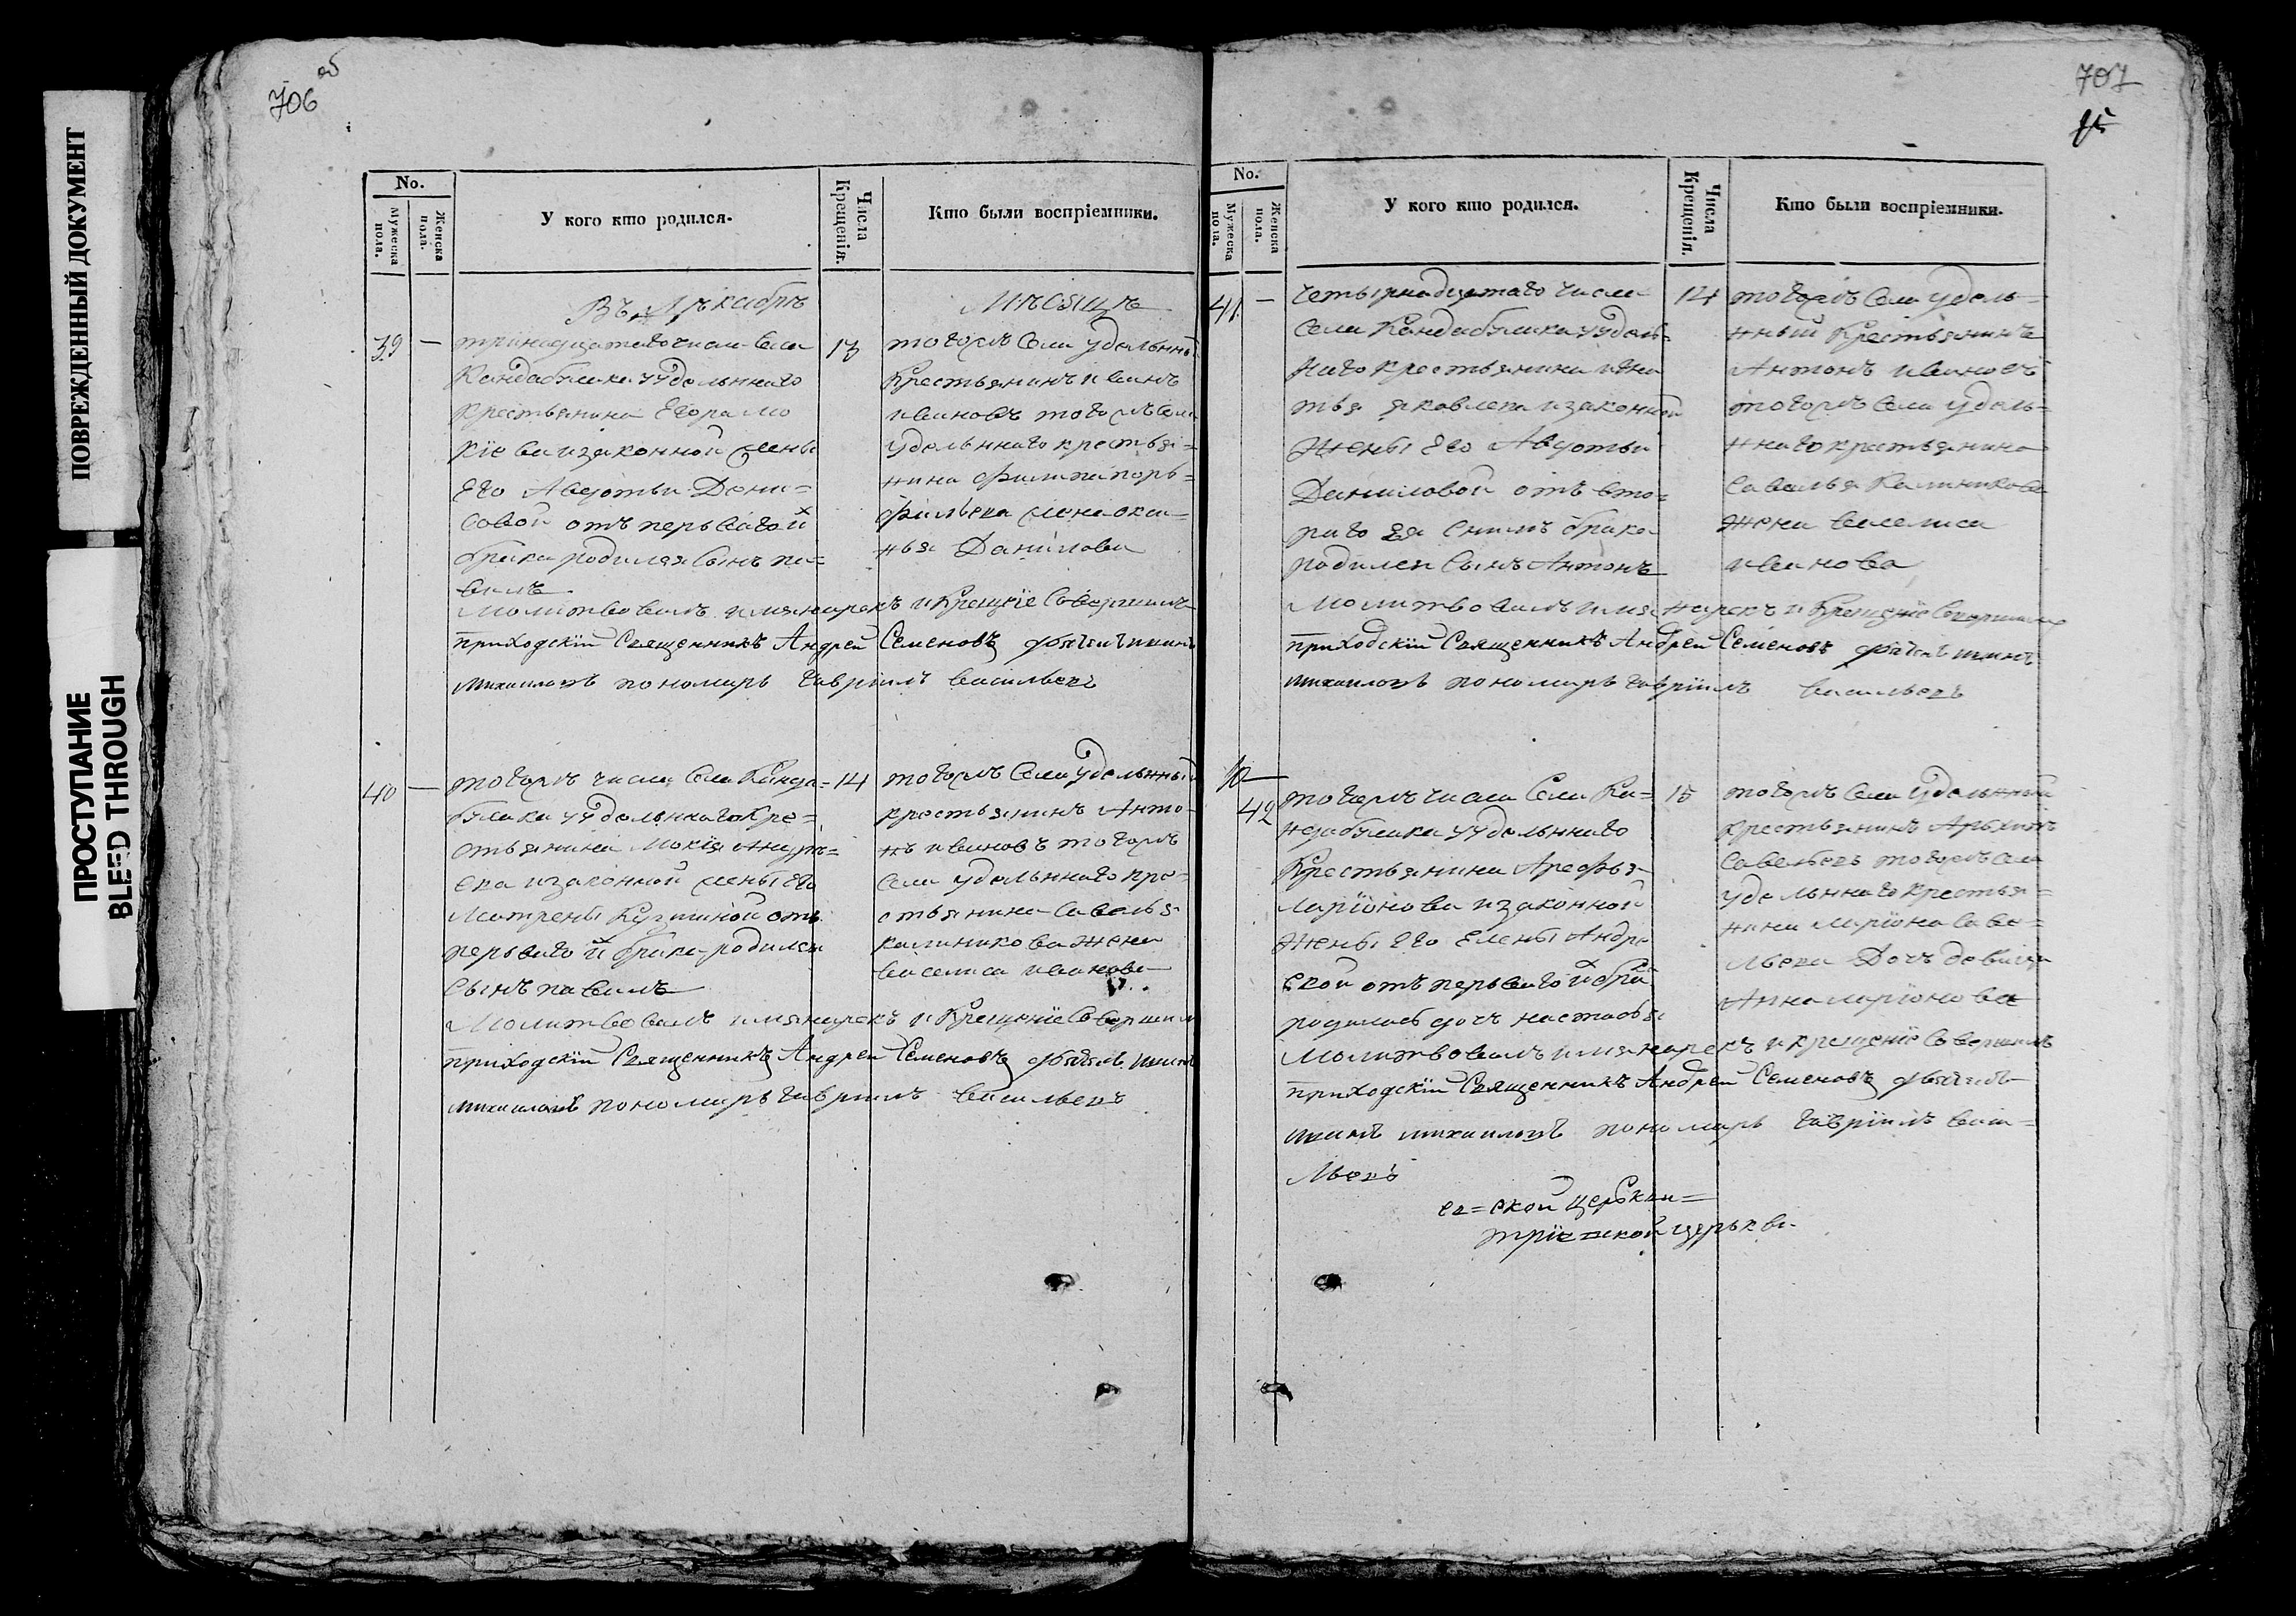 ПОВРЕЖДЕННЫЙ ДОКУМЕНТ
ПРОСТУПАНИЕ
BLEED THROUGH
706 об
No.
Мужеска пола.
Женска пола.
У кого кто родился.
Числа Крещенія.
Кто были воспріемники.
Въ Декабрѣ Мѣсяцѣ
39 —
тринадцатаго числа Села
Кандабулака удельнаго
крестьянина Егора Мо
кіева изаконной жены
Его Авдотьи Дени=
совой отъ перваго й
брака родился Сынъ па=
велъ
13
тогожъ Села удельный
крестьянинъ иванъ
ивановъ тогожъ Села
удельнаго крестья=
нина филипа пор=
фильева жена
Данилова
Молитвовалъ имянарекъ и Крещеніе Совершилъ
приходскій Священникъ Андрей Семеновъ
михаиловъ пономарь гавріилъ васильевъ
40 —
тогожъ числа Села Канда=
булака удельнаго Кре=
стьянина Мокія Андре=
ева изаконной жены Его
Матрены Кузминой отъ
перваго й брака родился
Сынъ павелъ
14
тогожъ Села удельный
крестьянинъ Анто
нъ ивановъ тогожъ
Села удельнаго кре=
стьянина Савелья
калиникова жена
василиса иванова
Молитвовалъ имянарекъ и Крещеніе Совершилъ
приходскій Священникъ Андрей Семеновъ
михаиловъ пономарь гавріилъ васильевъ
707
No.
Мужеска пола.
Женска пола.
У кого кто родился.
Числа Крещенія.
Кто были воспріемники.
41 —
четырнадцатаго числа
Села Кандабулака удель=
наго крестьянина игна
тья яковлева изаконной
Жены Его Авдотьи
Даниловой отъ вто=
раго брака
родился Сынъ Антонъ
14
тогожъ Села удель=
ный Крестьянинъ
Антонъ ивановъ
тогожъ Села удель=
наго крестьянина
Савелья Калиникова
жена василиса
иванова
Молитвовалъ имя нарекъ и Крещеніе Совершилъ
приходскій Священникъ Андрей Семеновъ
михаиловъ пономарь гавріилъ васильевъ
42
тогожъ числа Села Ка=
ндабулака удельнаго
Крестьянина Арефья
ларіонова изаконной
Жены Его Елены Андре
евой отъ перваго й бра
родилась дочь настасья
15
тогожъ Села удельный
крестьянинъ Архипъ
Савельевъ тогожъ Села
удельнаго крестья=
нина ларіона Саве=
льева Дочь девица
Анна ларіонова
Молитвовалъ имянарекъ и крещеніе Совершилъ
приходскій Священникъ Андрей Семеновъ
михаиловъ пономарь гавріилъ васи=
льевъ
ской церкви=
церькви